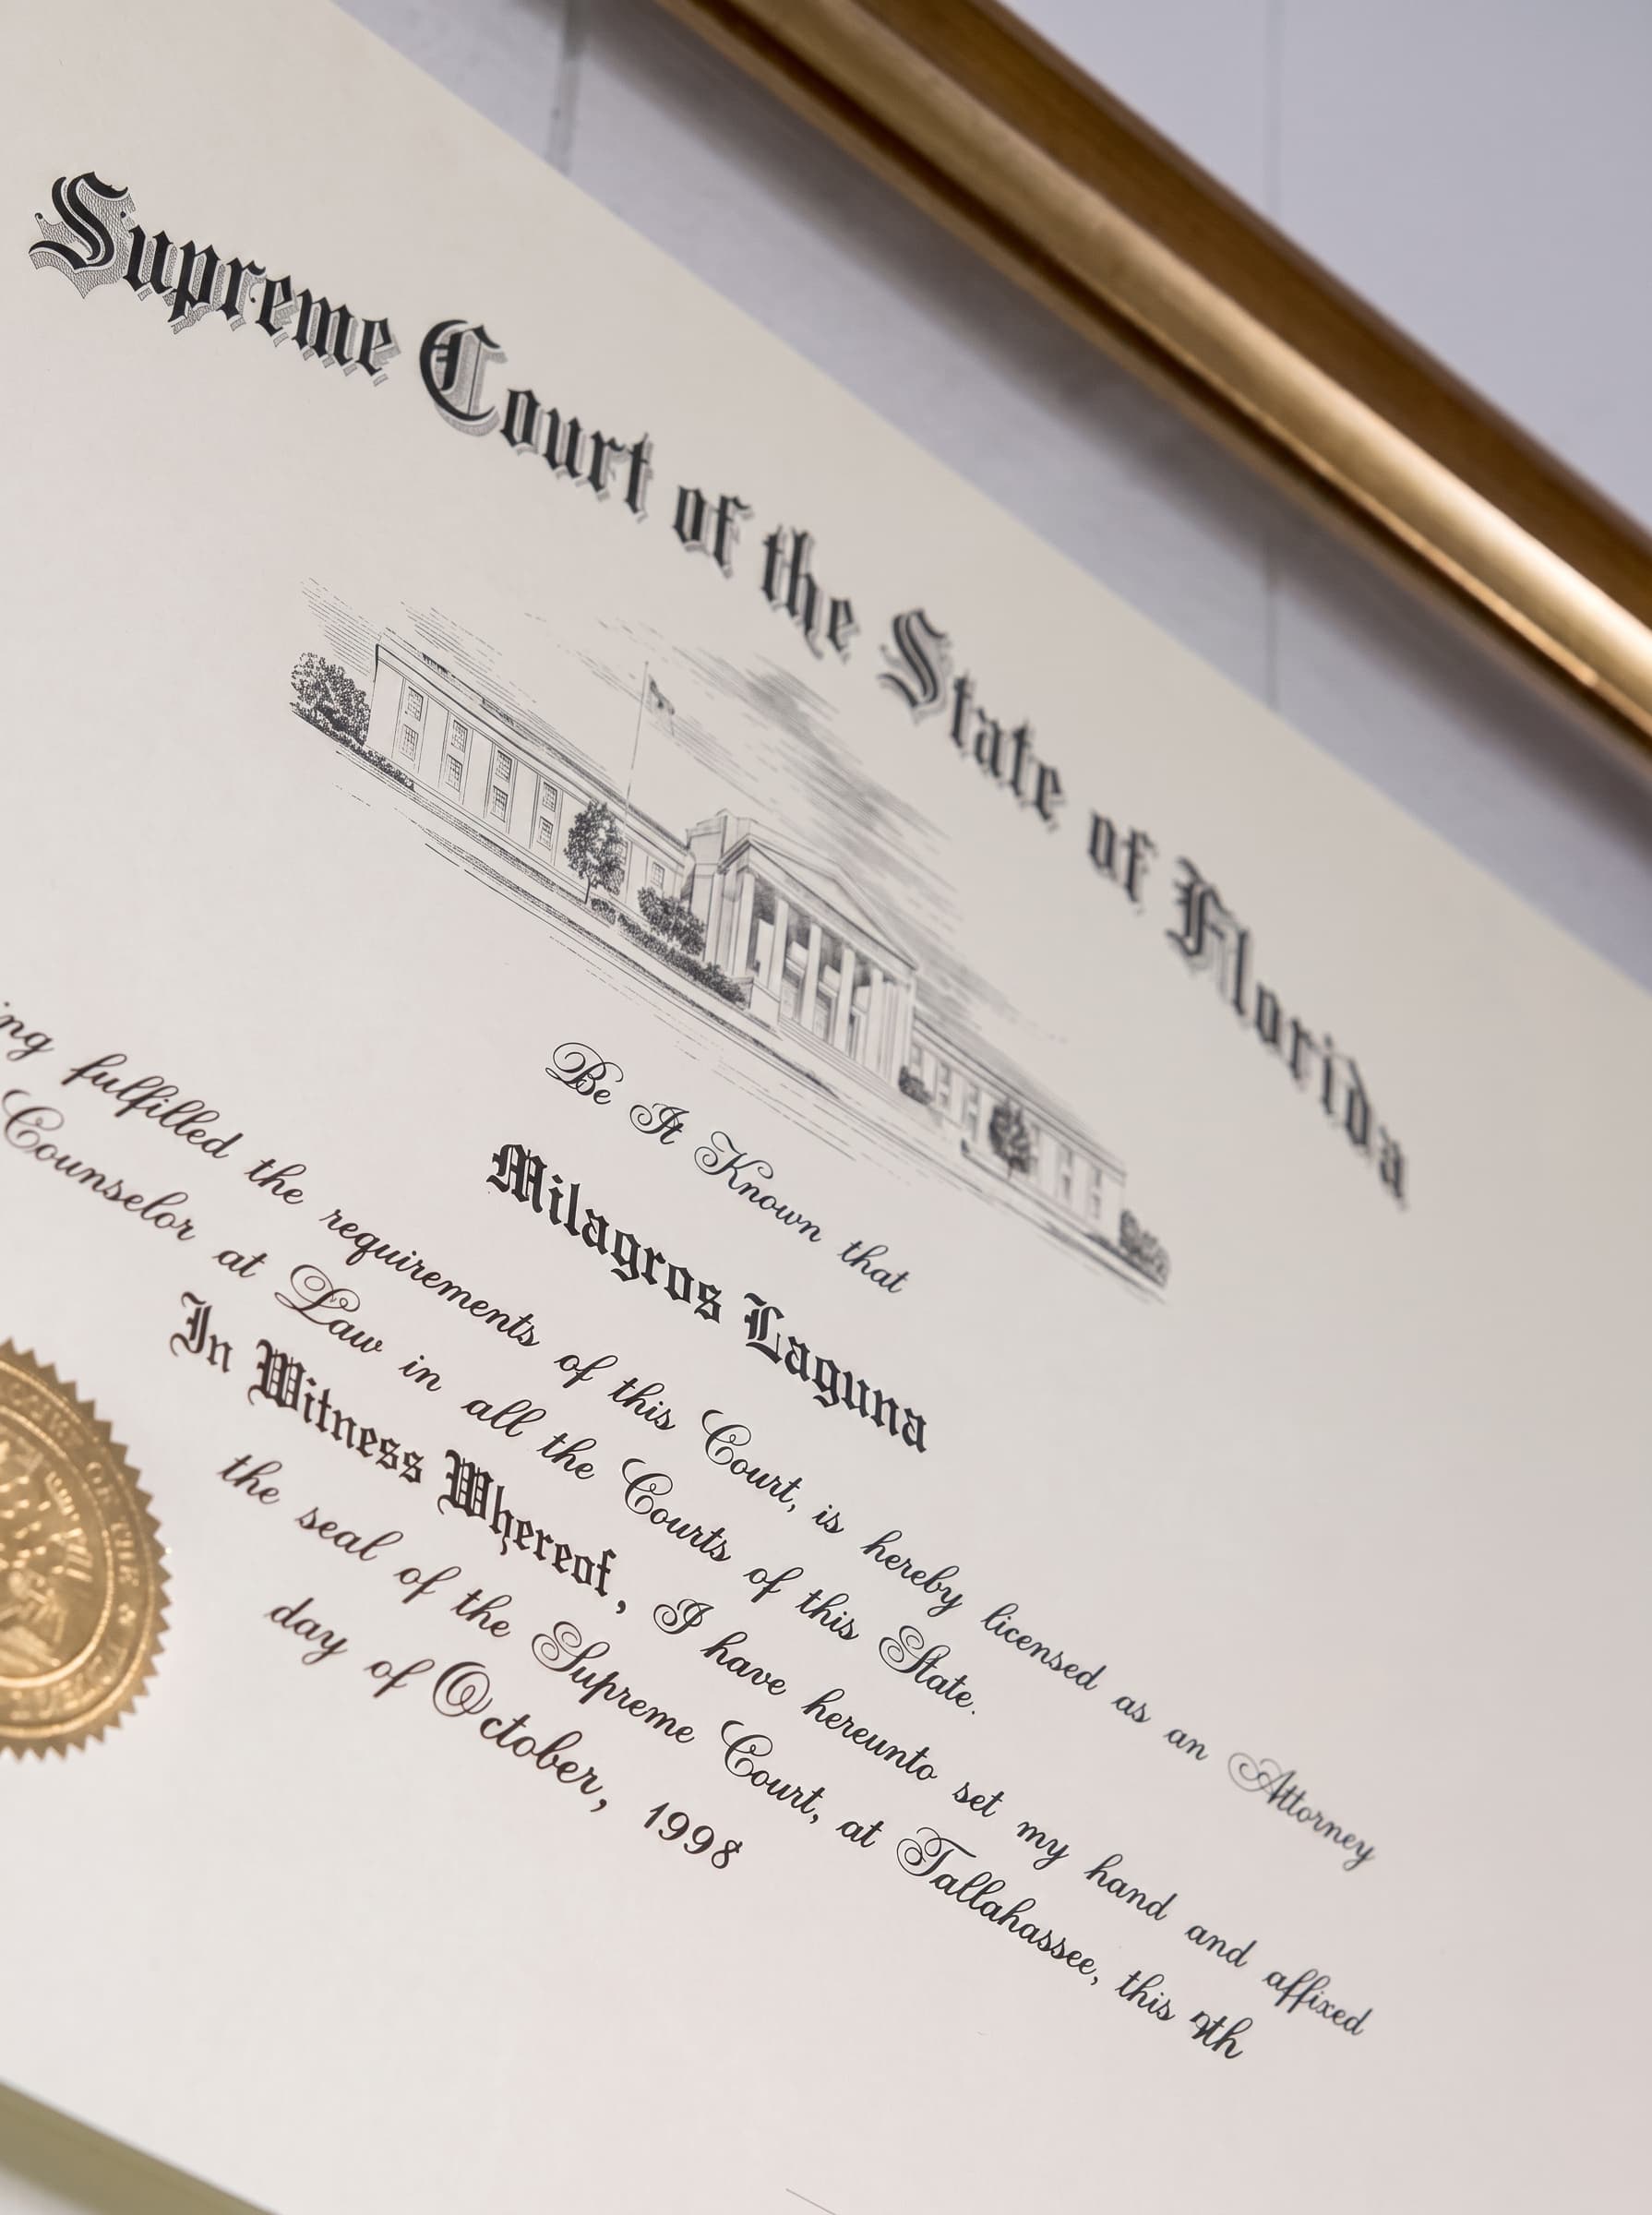 Supreme Court of the State of Florida
Be It Known that
Milagros Laguna
fulfilled the requirements of this Court, is hereby licensed as an Attorney
Counselor at Law in all the Courts of this State.
In Witness Whereof, I have hereunto set my hand and affixed
the seal of the Supreme Court, at Tallahassee, this
day of October, 1998
OF THE